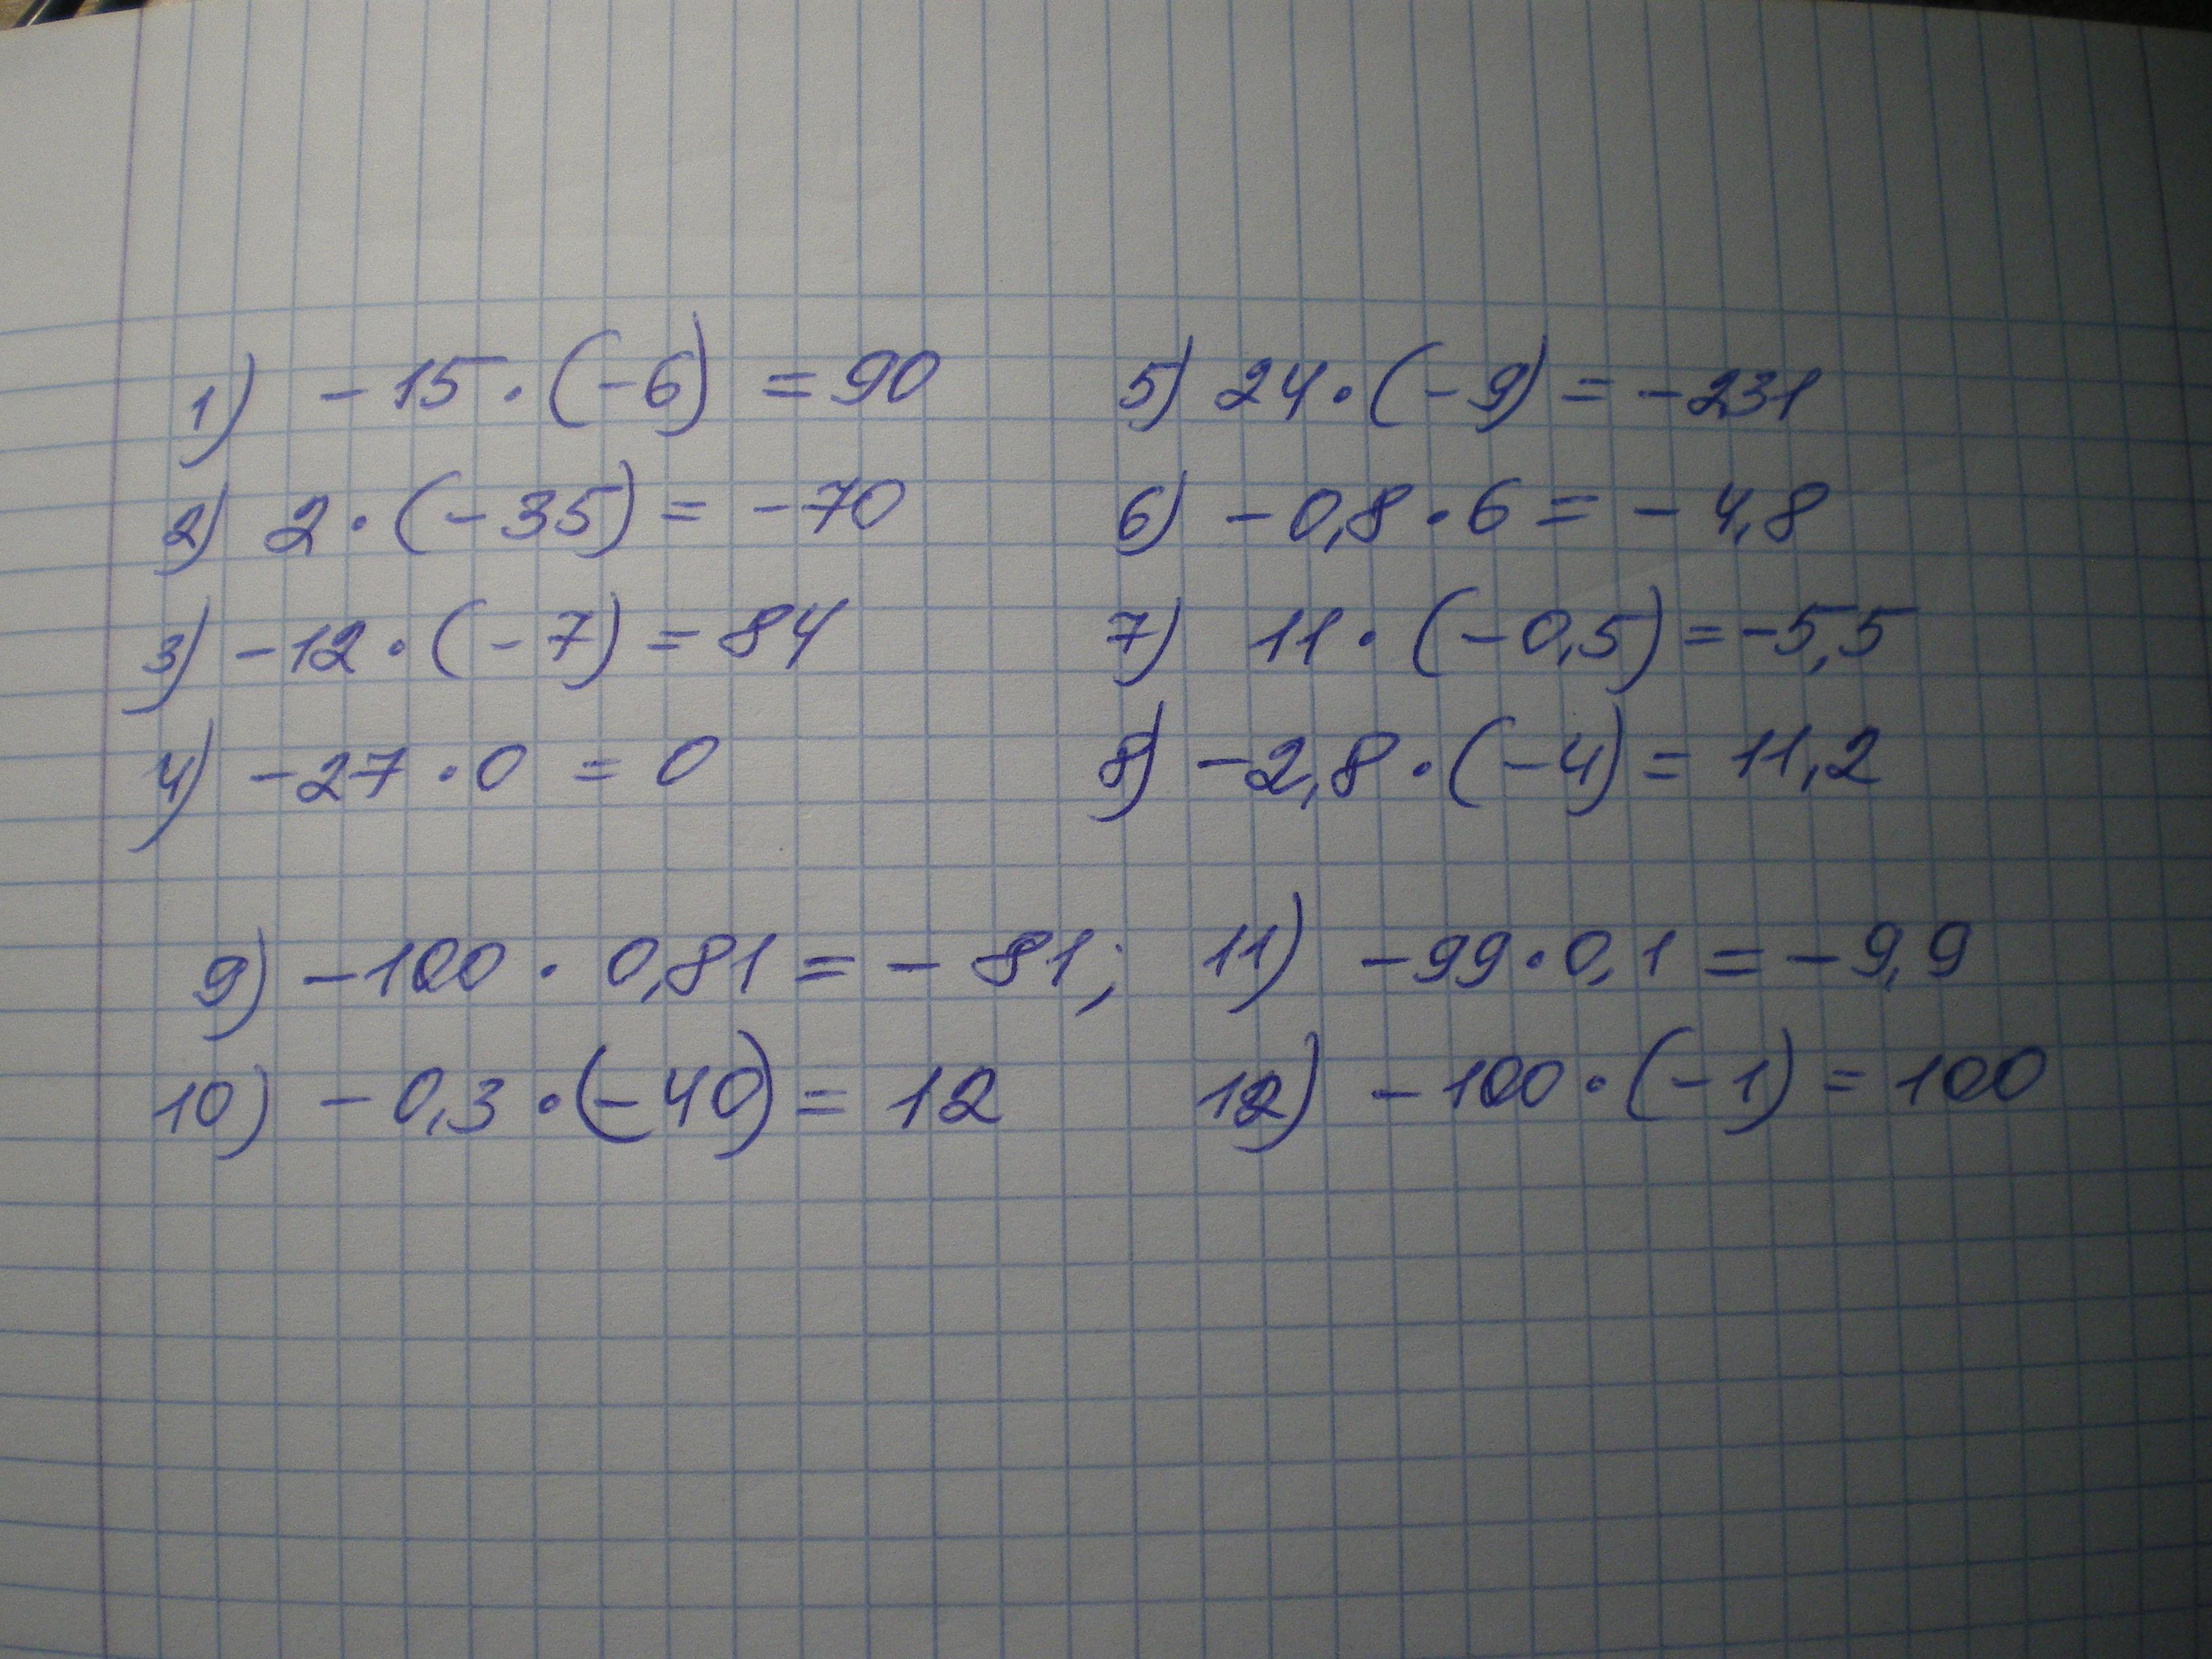 1) -15 · (-6) = 90
2) 2 · (-35) = -70
3) -12 · (-7) = 84
4) -27 · 0 = 0
5) 24 · (-9) = -231
6) -0,8 · 6 = -4,8
7) 11 · (-0,5) = -5,5
8) -2,8 · (-4) = 11,2
9) -100 · 0,81 = -81;
10) -0,3 · (-40) = 12
11) -99 · 0,1 = -9,9
12) -100 · (-1) = 100